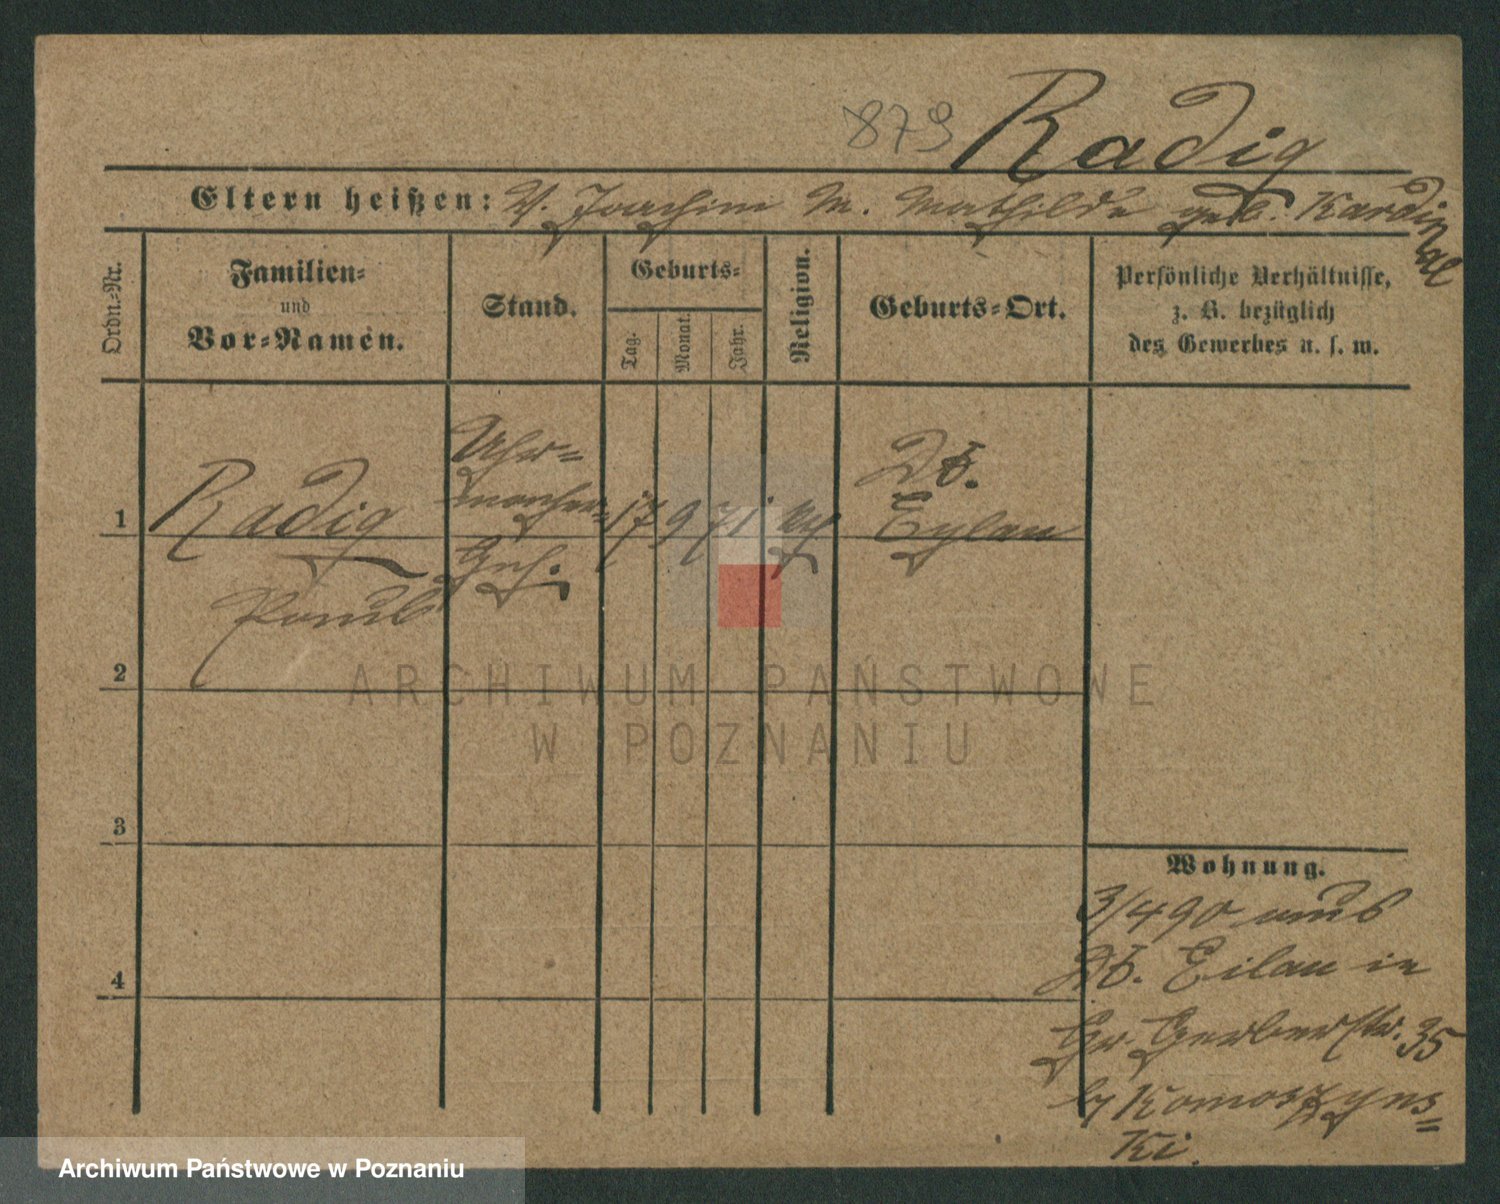 879 Radig
Eltern heißen: V. Joachim M. Mathilde geb. Kardinal
Ordn.-Nr.
Familien-
und
Vor-Namen.
Stand.
Geburts-
Tag.
Monat.
Jahr.
Religion.
Geburts-Ort.
Persönliche Verhältnisse,
z. B. bezüglich
des Gewerbes u. s. w.
1
Radig
Paul
Uhr-
macher-
Geh.
17 9 71
Dt.
Eylau
2
3
4
Wohnung.
3/4 90 aus
Dt. Eilau in
Gr. Gerberstr. 35
by Komoszyns-
ki.
ARCHIWUM PAŃSTWOWE
W POZNANIU
Archiwum Państwowe w Poznaniu